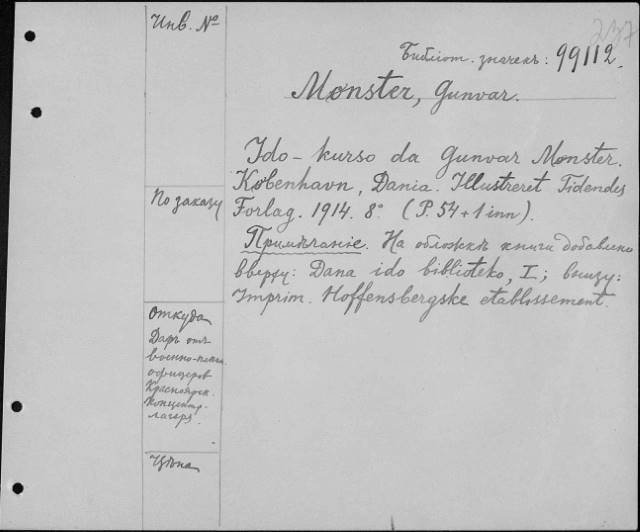 Инв. №
237
Библіот. значекъ: 99112.
Mønster, Gunvar.
Ido-kurso da Gunvar Mønster.
København, Dania. Illustreret Tidendes
Forlag. 1914. 8° (P. 54 + 1 inn).
Примѣчаніе. На обложкѣ книги добавлено
вверху: Dana ido biblioteko, I; внизу:
Imprim. Hoffensbergske etablissement.
По заказу
Откуда
Даръ отъ
военно-плѣн.
офицеров
Красноярск.
концентр.
лагеря.
Цѣна